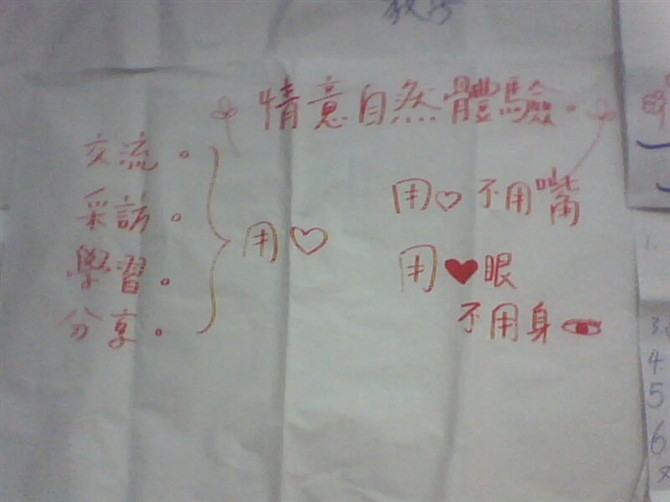 情意自然體驗。
交流。
采訪。
學習。
分享。
用♡
用♡不用嘴
用♥眼
不用身👁
3.
4.
5
6